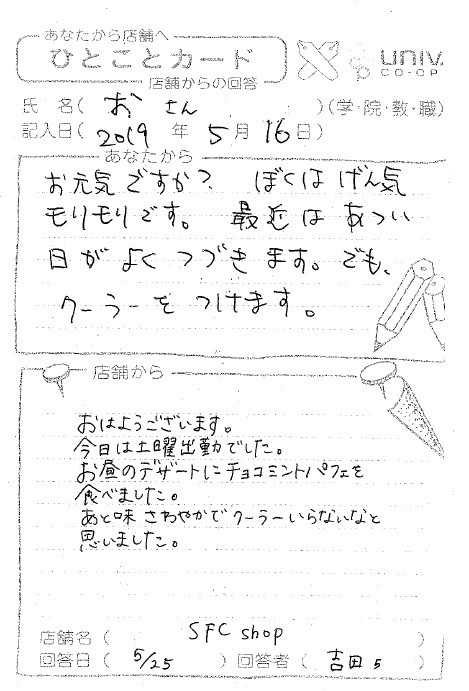 あなたから店舗へ
ひとことカード
店舗からの回答
univ.
CO-OP
氏 名( おさん )(学・院・教・職)
記入日( 2019 年 5月 16日)
あなたから
お元気ですか? ぼくはげん気
モリモリです。 最近はあつい
日がよくつづきます。でも、
クーラーをつけます。
店舗から
おはようございます。
今日は土曜出勤でした。
お昼のデザートにチョコミントパフェを
食べました。
あと味さわやかでクーラーいらないなと
思いました。
店舗名( SFC shop )
回答日( 5/25 )回答者( 吉田 )